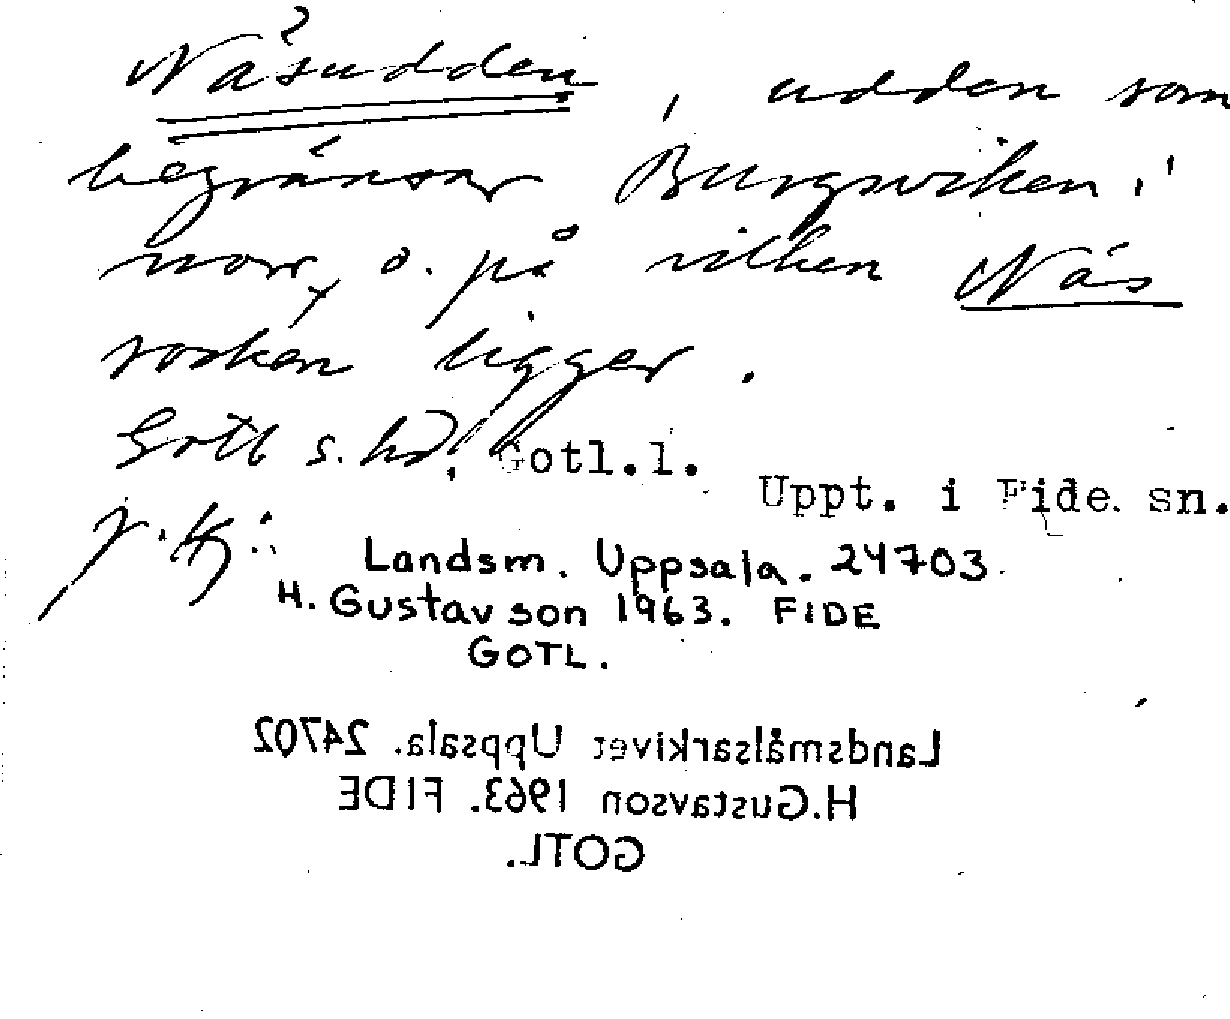 Näsudden, udden som
begränsar Burgsviken i
norr, o. på vilken Näs
socken ligger.
Gotl s. hd. Gotl.l.
Uppt. i Fide sn.
Landsm. Uppsala. 24703
H. Gustavson 1963. FIDE
GOTL.
Landsmålsarkivet Uppsala. 24702
H.Gustavson 1963. FIDE
GOTL.